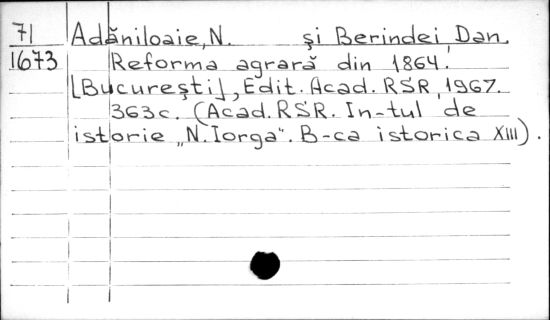 71 Adăniloaie, N. și Berindei, Dan.
1673 Reforma agrară din 1864.
[București], Edit. Acad. RSR, 1967.
363c. (Acad. RSR. In-tul de
istorie „N. Iorga". B-ca istorica XIII).